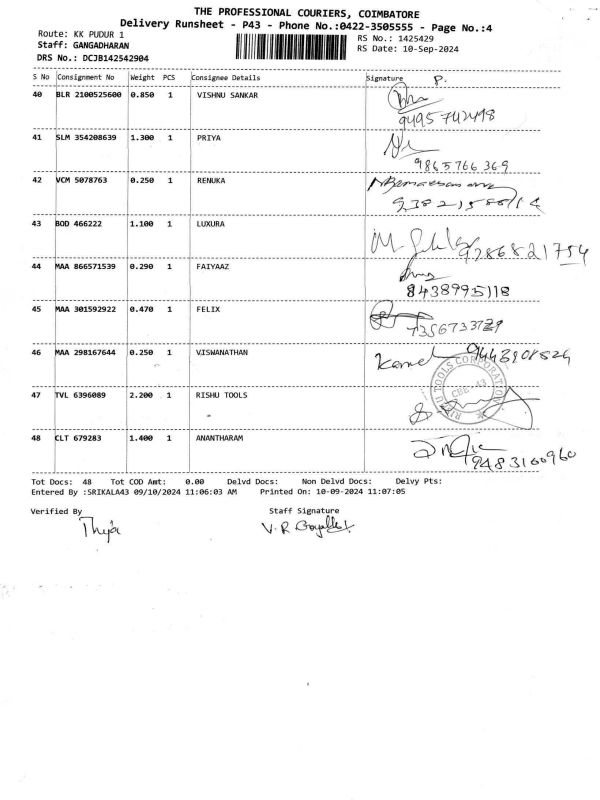 THE PROFESSIONAL COURIERS, COIMBATORE
Delivery Runsheet - P43 - Phone No.:0422-3505555 - Page No.:4
Route: KK PUDUR 1
RS No.: 1425429
Staff: GANGADHARAN
RS Date: 10-Sep-2024
DRS No.: DCJB142542904
S No Consignment No Weight PCS Consignee Details Signature P.
40 BLR 2100525600 0.850 1 VISHNU SANKAR
9495742498
41 SLM 354208639 1.300 1 PRIYA
9865766369
42 VCM 5078763 0.250 1 RENUKA
43 BOD 466222 1.100 1 LUXURA
9286821754
44 MAA 866571539 0.290 1 FAIYAAZ
8438995118
45 MAA 301592922 0.470 1 FELIX
7356733729
46 MAA 298167644 0.250 1 VISWANATHAN
47 TVL 6396089 2.200 1 RISHU TOOLS
RISHU TOOLS CORPORATION
CBE-43
48 CLT 679283 1.400 1 ANANTHARAM
9483160960
Tot Docs: 48 Tot COD Amt: 0.00 Delvd Docs: Non Delvd Docs: Delvy Pts:
Entered By :SRIKALA43 09/10/2024 11:06:03 AM Printed On: 10-09-2024 11:07:05
Verified By
Staff Signature
V.R